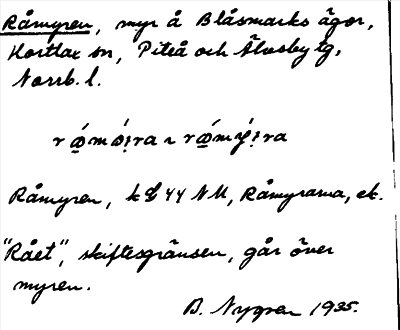 Råmyren, myr å Blåsmarks ägor,
Hortlax sn, Piteå och Älvsby tg,
Norrb. l.
Råmyren, k NM, Råmyrarna, ek.
"Rået", skiftesgränsen, går över
myren.
B. Nygren 1935.